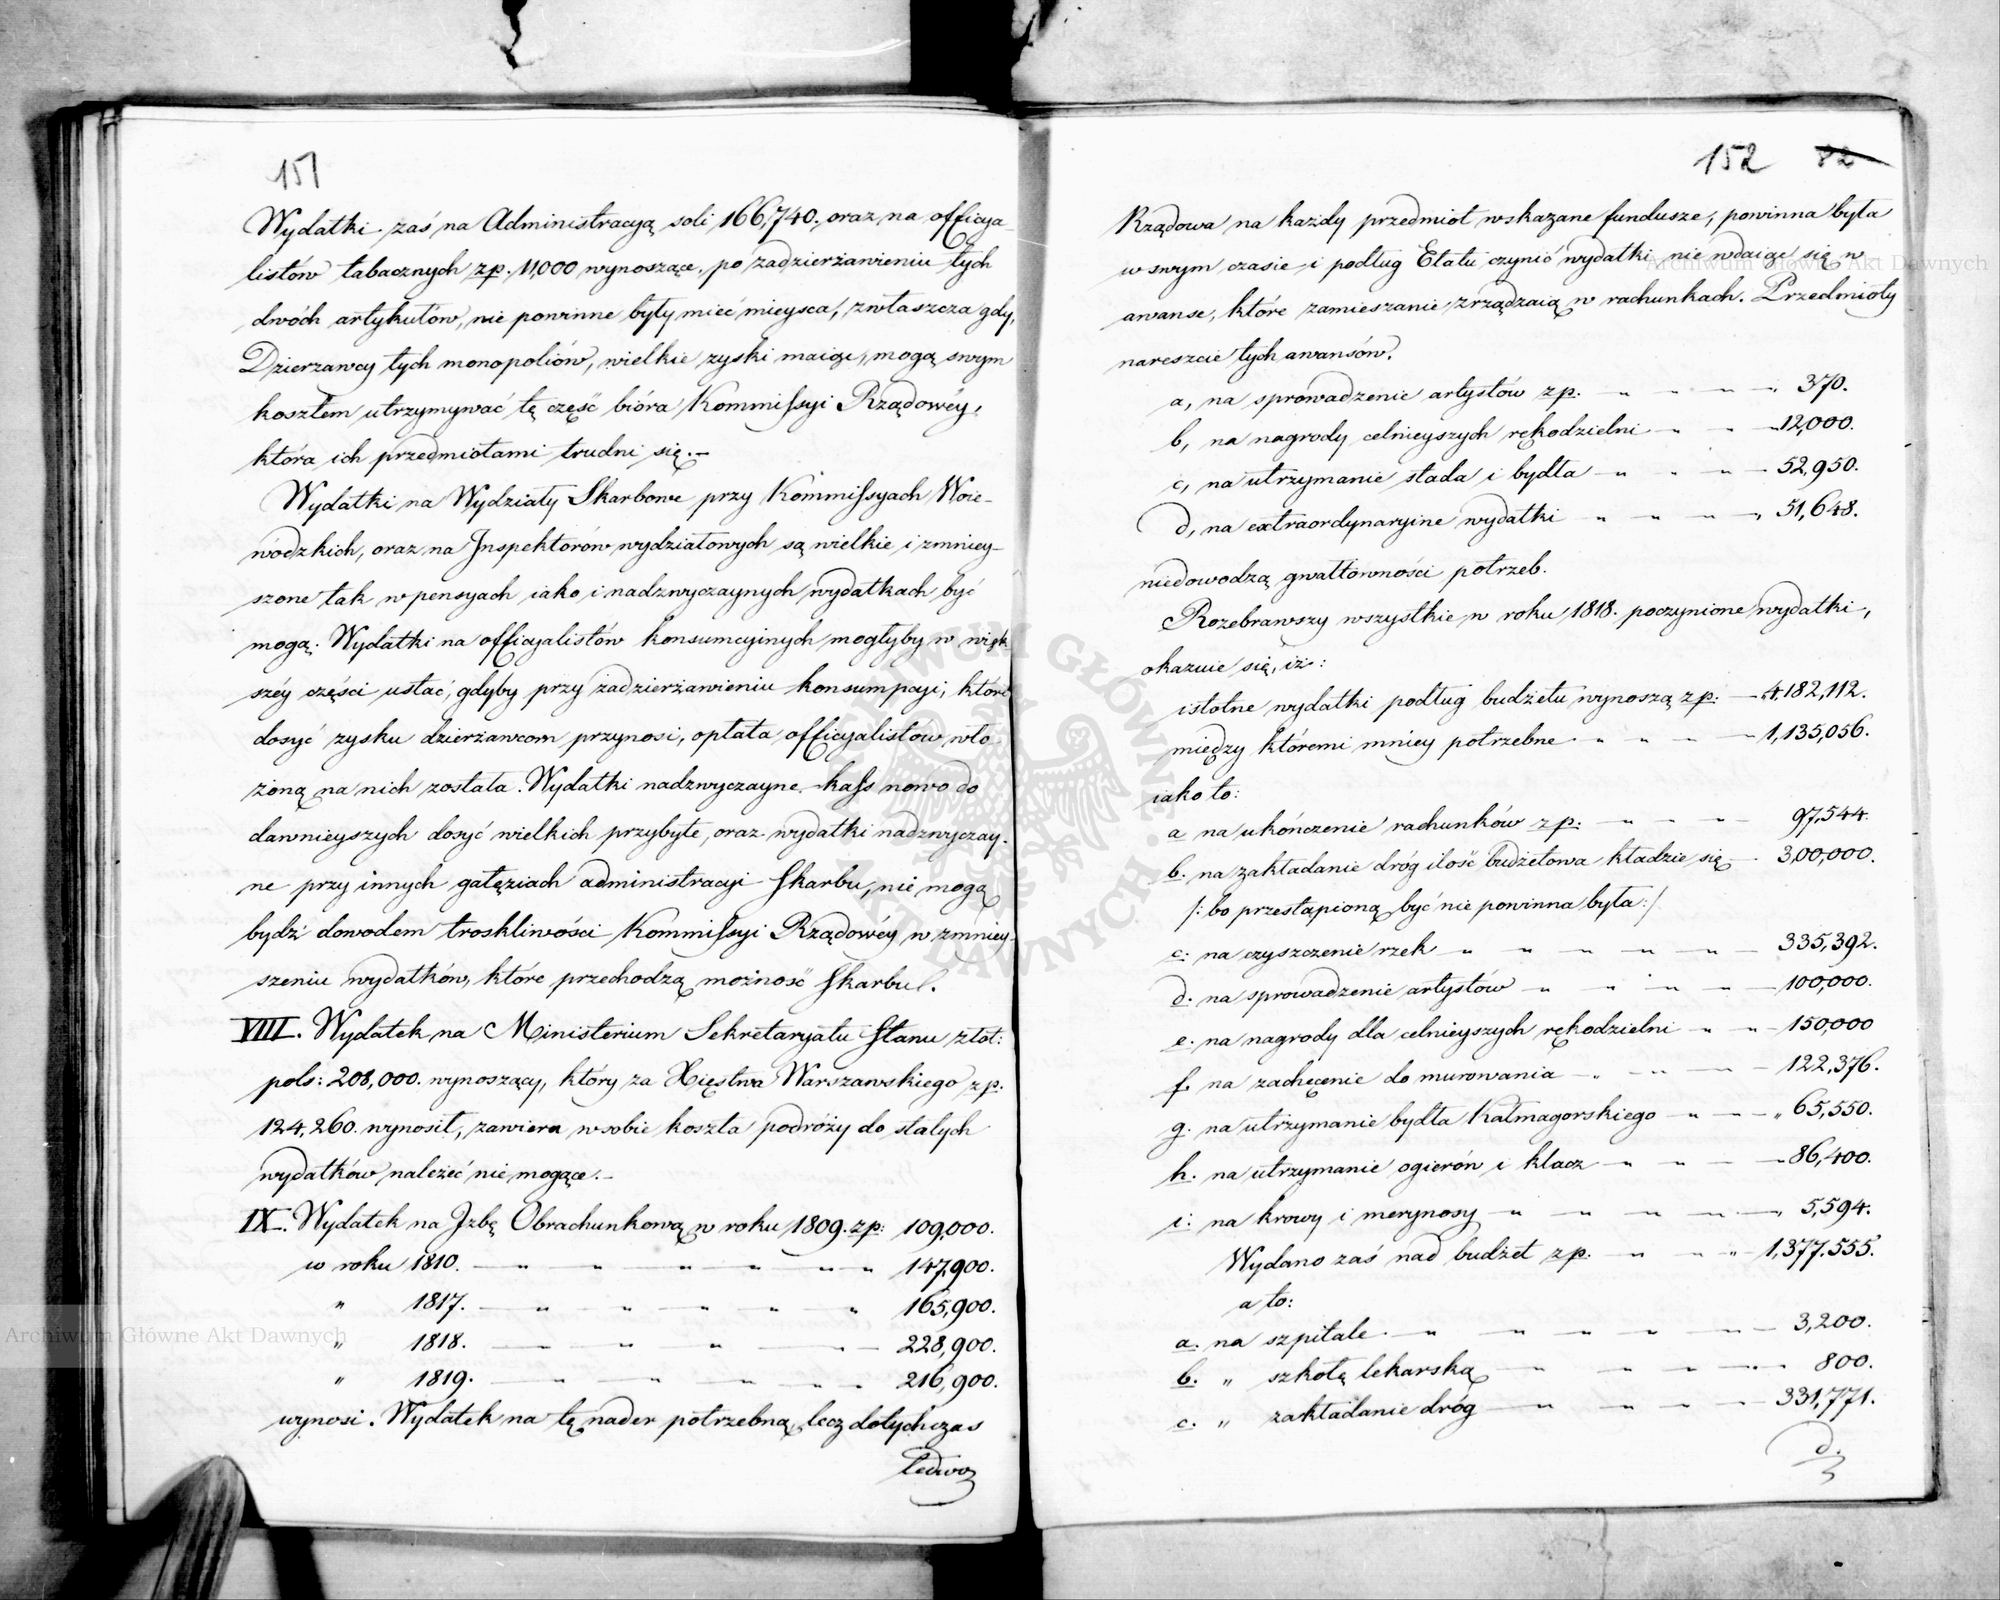 151
Wydatki zaś na Administracyą soli 166,740. oraz na officya-
listów tabacznych zp. 11,000 wynoszące, po zadzierżawieniu tych
dwóch artykułów, nie powinne były mieć mieysca, zwłaszcza gdy,
Dzierzawcy tych monopoliów, wielkie zyski maiąc, mogą swym
kosztem utrzymywać tę część bióra Kommissyi Rządowéy,
która ich przedmiotami trudni się.-
Wydatki na Wydziały Skarbowe przy Kommissyach Woie-
wodzkich, oraz na Inspektorów wydziałowych są wielkie i zmniey-
szone tak w pensyach iako i nadzwyczaynych wydatkach być
mogą. Wydatki na officyalistów konsumcyinych mogłyby w więk-
széy części ustać, gdyby przy zadzierżawieniu konsumpcyi, które
dosyć zysku dzierżawcom przynosi, opłata officyalistów wło-
żoną na nich została. Wydatki nadzwyczayne kass nowo do
dawnieyszych dosyć wielkich przybyłe, oraz wydatki nadzwyczay-
ne przy innych gałęziach administracyi Skarbu, nie mogą
bydź dowodem troskliwości Kommissyi Rządowéy w zmniey-
szeniu wydatków, które przechodzą możność Skarbu.
VIII. Wydatek na Ministerium Sekretaryatu Stanu złot:
pols: 208,000. wynoszący, który za Xięstwa Warszawskiego zp.
124,260. wynosił, zawiera w sobie koszta podróży do stałych
wydatków należeć nie mogące.-
IX. Wydatek na Izbę Obrachunkową w roku 1809. zp: 109,000.
w roku 1810. — " " " " " " 147,900.
" 1817. — " " " " " 165,900.
" 1818. — " " " — 228,900.
" 1819. — " " " " " 216,900.
wynosi. Wydatek na tę nader potrzebną, lecz dotychczas
ledwo
152 82
Rządowa na każdy przedmiot wskazane fundusze, powinna była
w swym czasie i podług Etatu czynić wydatki nie wdaiąc się w
awanse, które zamieszanie zrządzaią w rachunkach. Przedmioty
nareszcie tych awansów.
a, na sprowadzenie artystów zp. — " " " " 370.
b, na nagrody celnieyszych rękodzielni — " " " 12,000.
c, na utrzymanie stada i bydła — " " " — 52,950.
d, na extraordynaryine wydatki " " " " 51,648.
niedowodzą gwałtowności potrzeb.
Rozebrawszy wszystkie w roku 1818. poczynione wydatki,
okazuie się, iż:
istotne wydatki podług budżetu wynoszą zp: — 4182,112.
między któremi mniey potrzebne " " " — 1,135,056.
iako to:
a na ukończenie rachunków zp: — " " " 97,544.
b. na zakładanie dróg ilość budżetowa kładzie się — 300,000.
/: bo przestąpioną być nie powinna była :/
c: na czyszczenie rzek " " " " " — 335,392.
d. na sprowadzenie artystów " " " " — 100,000.
e. na nagrody dla celnieyszych rękodzielni " " — 150,000
f. na zachęcenie do murowania — " " " — 122,376.
g. na utrzymanie bydła Kałmagorskiego — " — " 65,550.
h. na utrzymanie ogierów i klacz — " " " — 86,400.
i: na krowy i merynosy — " " " " " 5,594.
Wydano zaś nad budżet zp. — " " " — 1,377,555.
a to:
a. na szpitale — " " " " " — 3,200.
b. " szkołę lekarską — " " " " 800.
c. " zakładanie dróg — " " " — 331,771.
d.
Archiwum Główne Akt Dawnych
Archiwum Główne Akt Dawnych